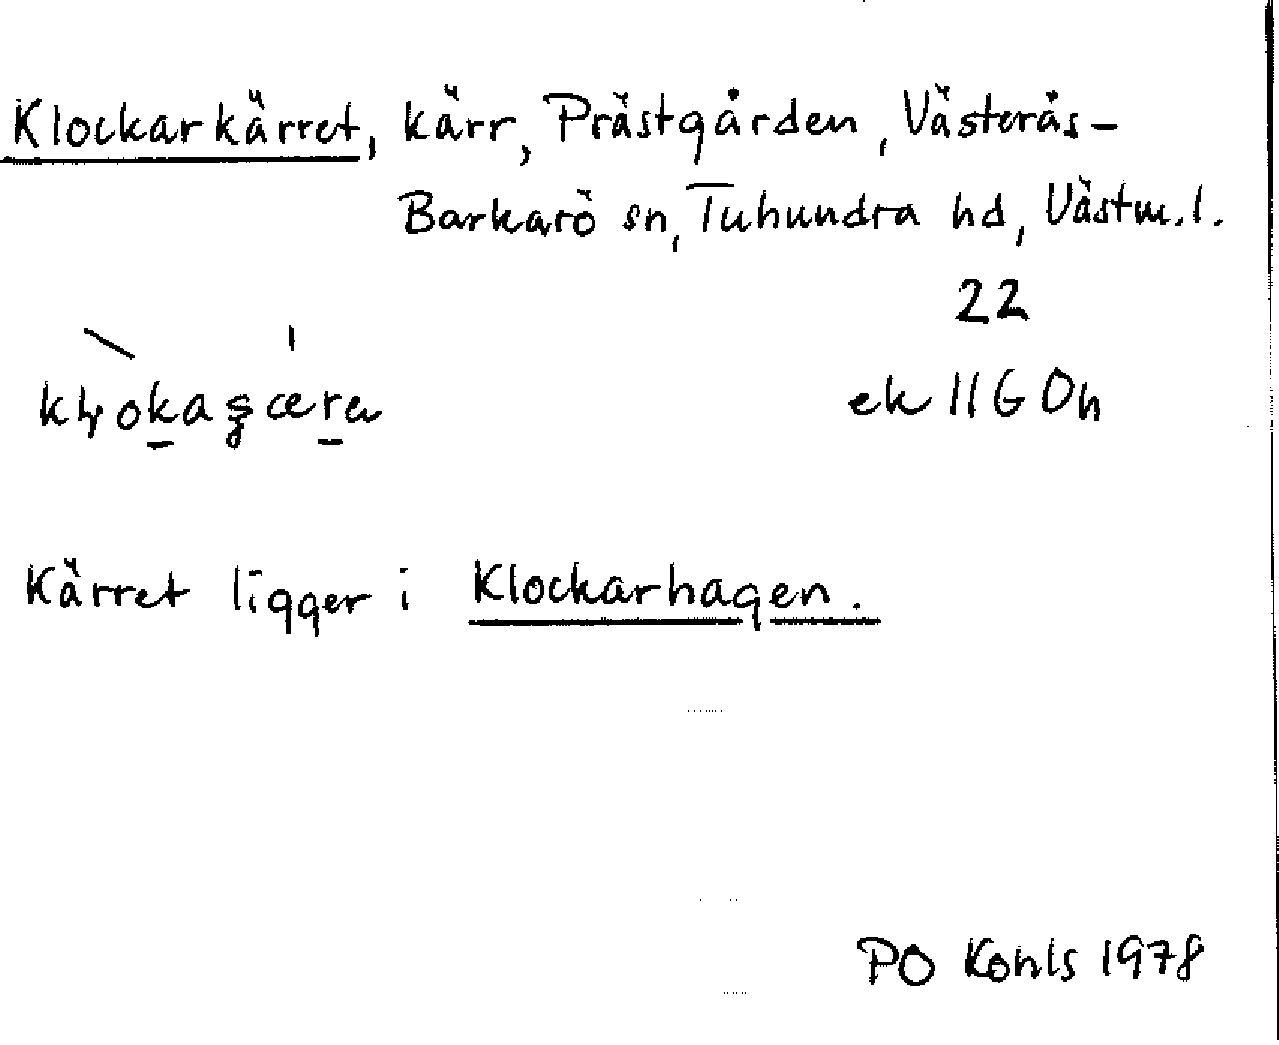 Klockarkärret, kärr, Prästgården, Västerås-
Barkarö sn, Tuhundra hd, Västm.l.
22
ek 11G 0h
Kärret ligger i Klockarhagen.
PO Kohls 1978